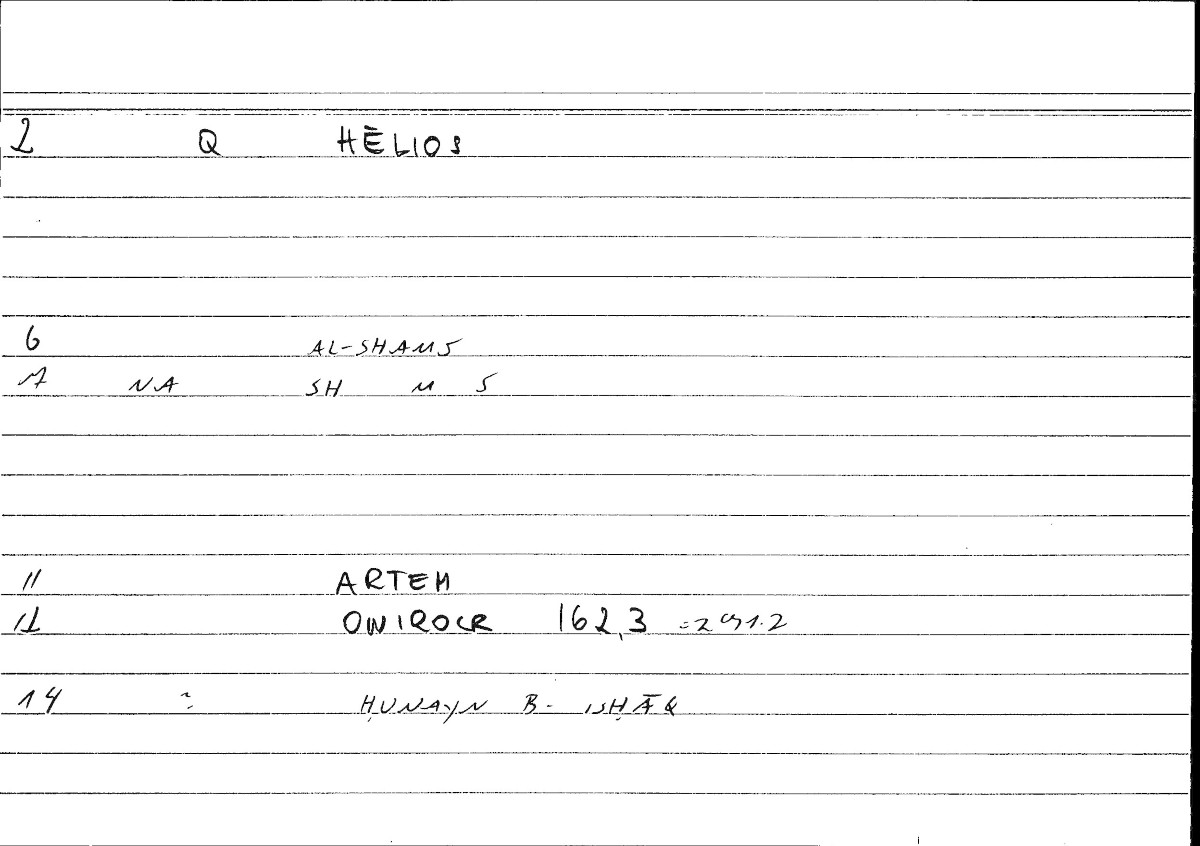 2 Q HĒLIOS
6 AL-SHAMS
7 NA SH M S
11 ARTEM
12 ONIROCR 162,3
14 ? ḤUNAYN B- ISḤĀQ